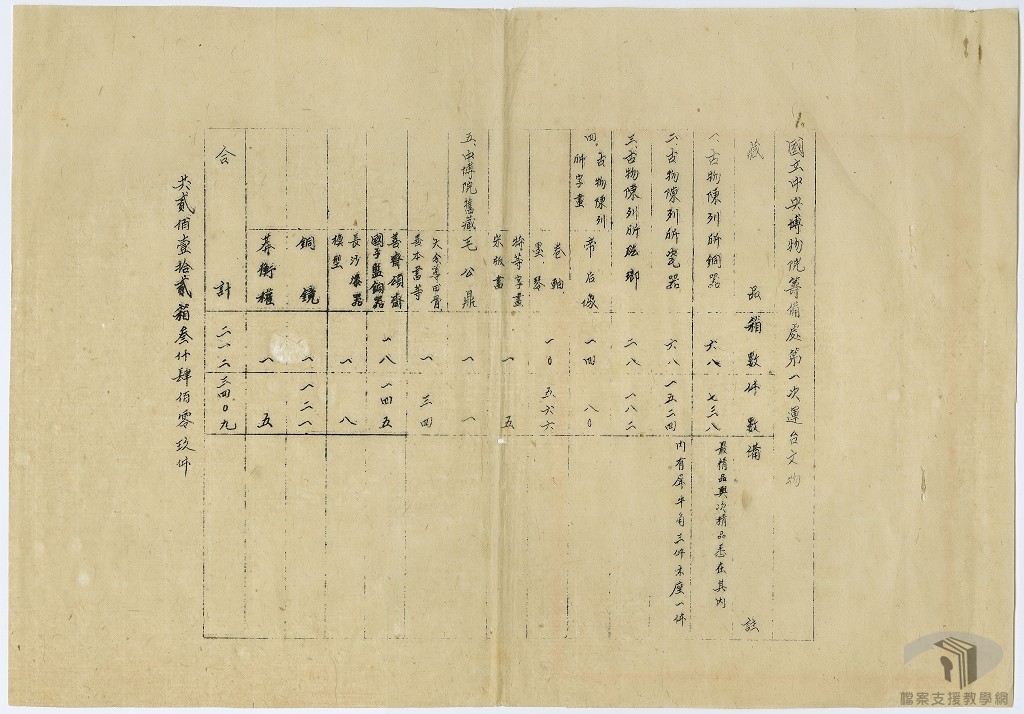 國立中央博物院籌備處第一次運台文物
藏品 箱數 件數 備註
一、古物陳列所銅器 六八 七三八 最精品與次精品悉在其內
二、古物陳列所瓷器 六八 一五二四 內有犀牛角三件木座一件
三、古物陳列所琺瑯 二八 一八二
四、古物陳列所字畫 帝后像 一四 八〇
卷軸
墨琴 一〇 五六六
特等字畫
宋板書 一 五
五、中博院舊藏 毛公鼎 一 一
大余等四骨
善本書等 一 三四
善齋頌齋
國子監銅器 一八 一四五
長沙漆器
模型 一 八
銅鏡 一 一二一
莽衡權 一 五
合計 二一二 三四〇九
共貳佰壹拾貳箱叁仟肆佰零玖件
檔案支援教學網